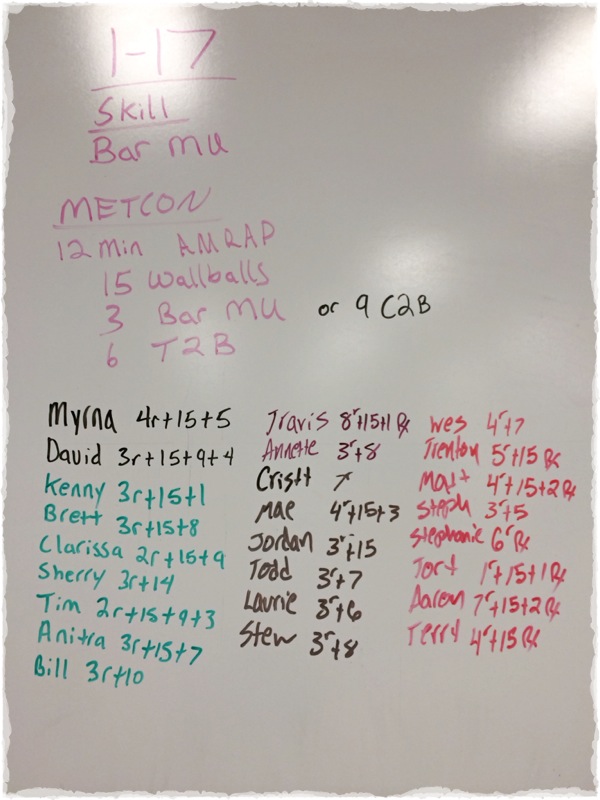 1-17
Skill
Bar MU
METCON
12 Min AMRAP
15 Wallballs
3 Bar MU or 9 C2B
6 T2B
Myrna 4r+15+5
David 3r+15+9+4
Kenny 3r+15+1
Brett 3r+15+8
Clarissa 2r+15+9
Sherry 3r+14
Tim 2r+15+9+3
Anitra 3r+15+7
Bill 3r+10
Travis 8r+15+1 Rx
Annette 3r+8
Mae 4r+15+3
Jordan 3r+15
Todd 3r+7
Laurie 3r+6
Stew 3r+8
Wes 4r+7
Trenton 5r+15 Rx
Matt 4r+15+2 Rx
Steph 3r+5
Stephanie 6r Rx
1r+15+1 Rx
Aaron 7r+15+2 Rx
Terry 4r+15 Rx